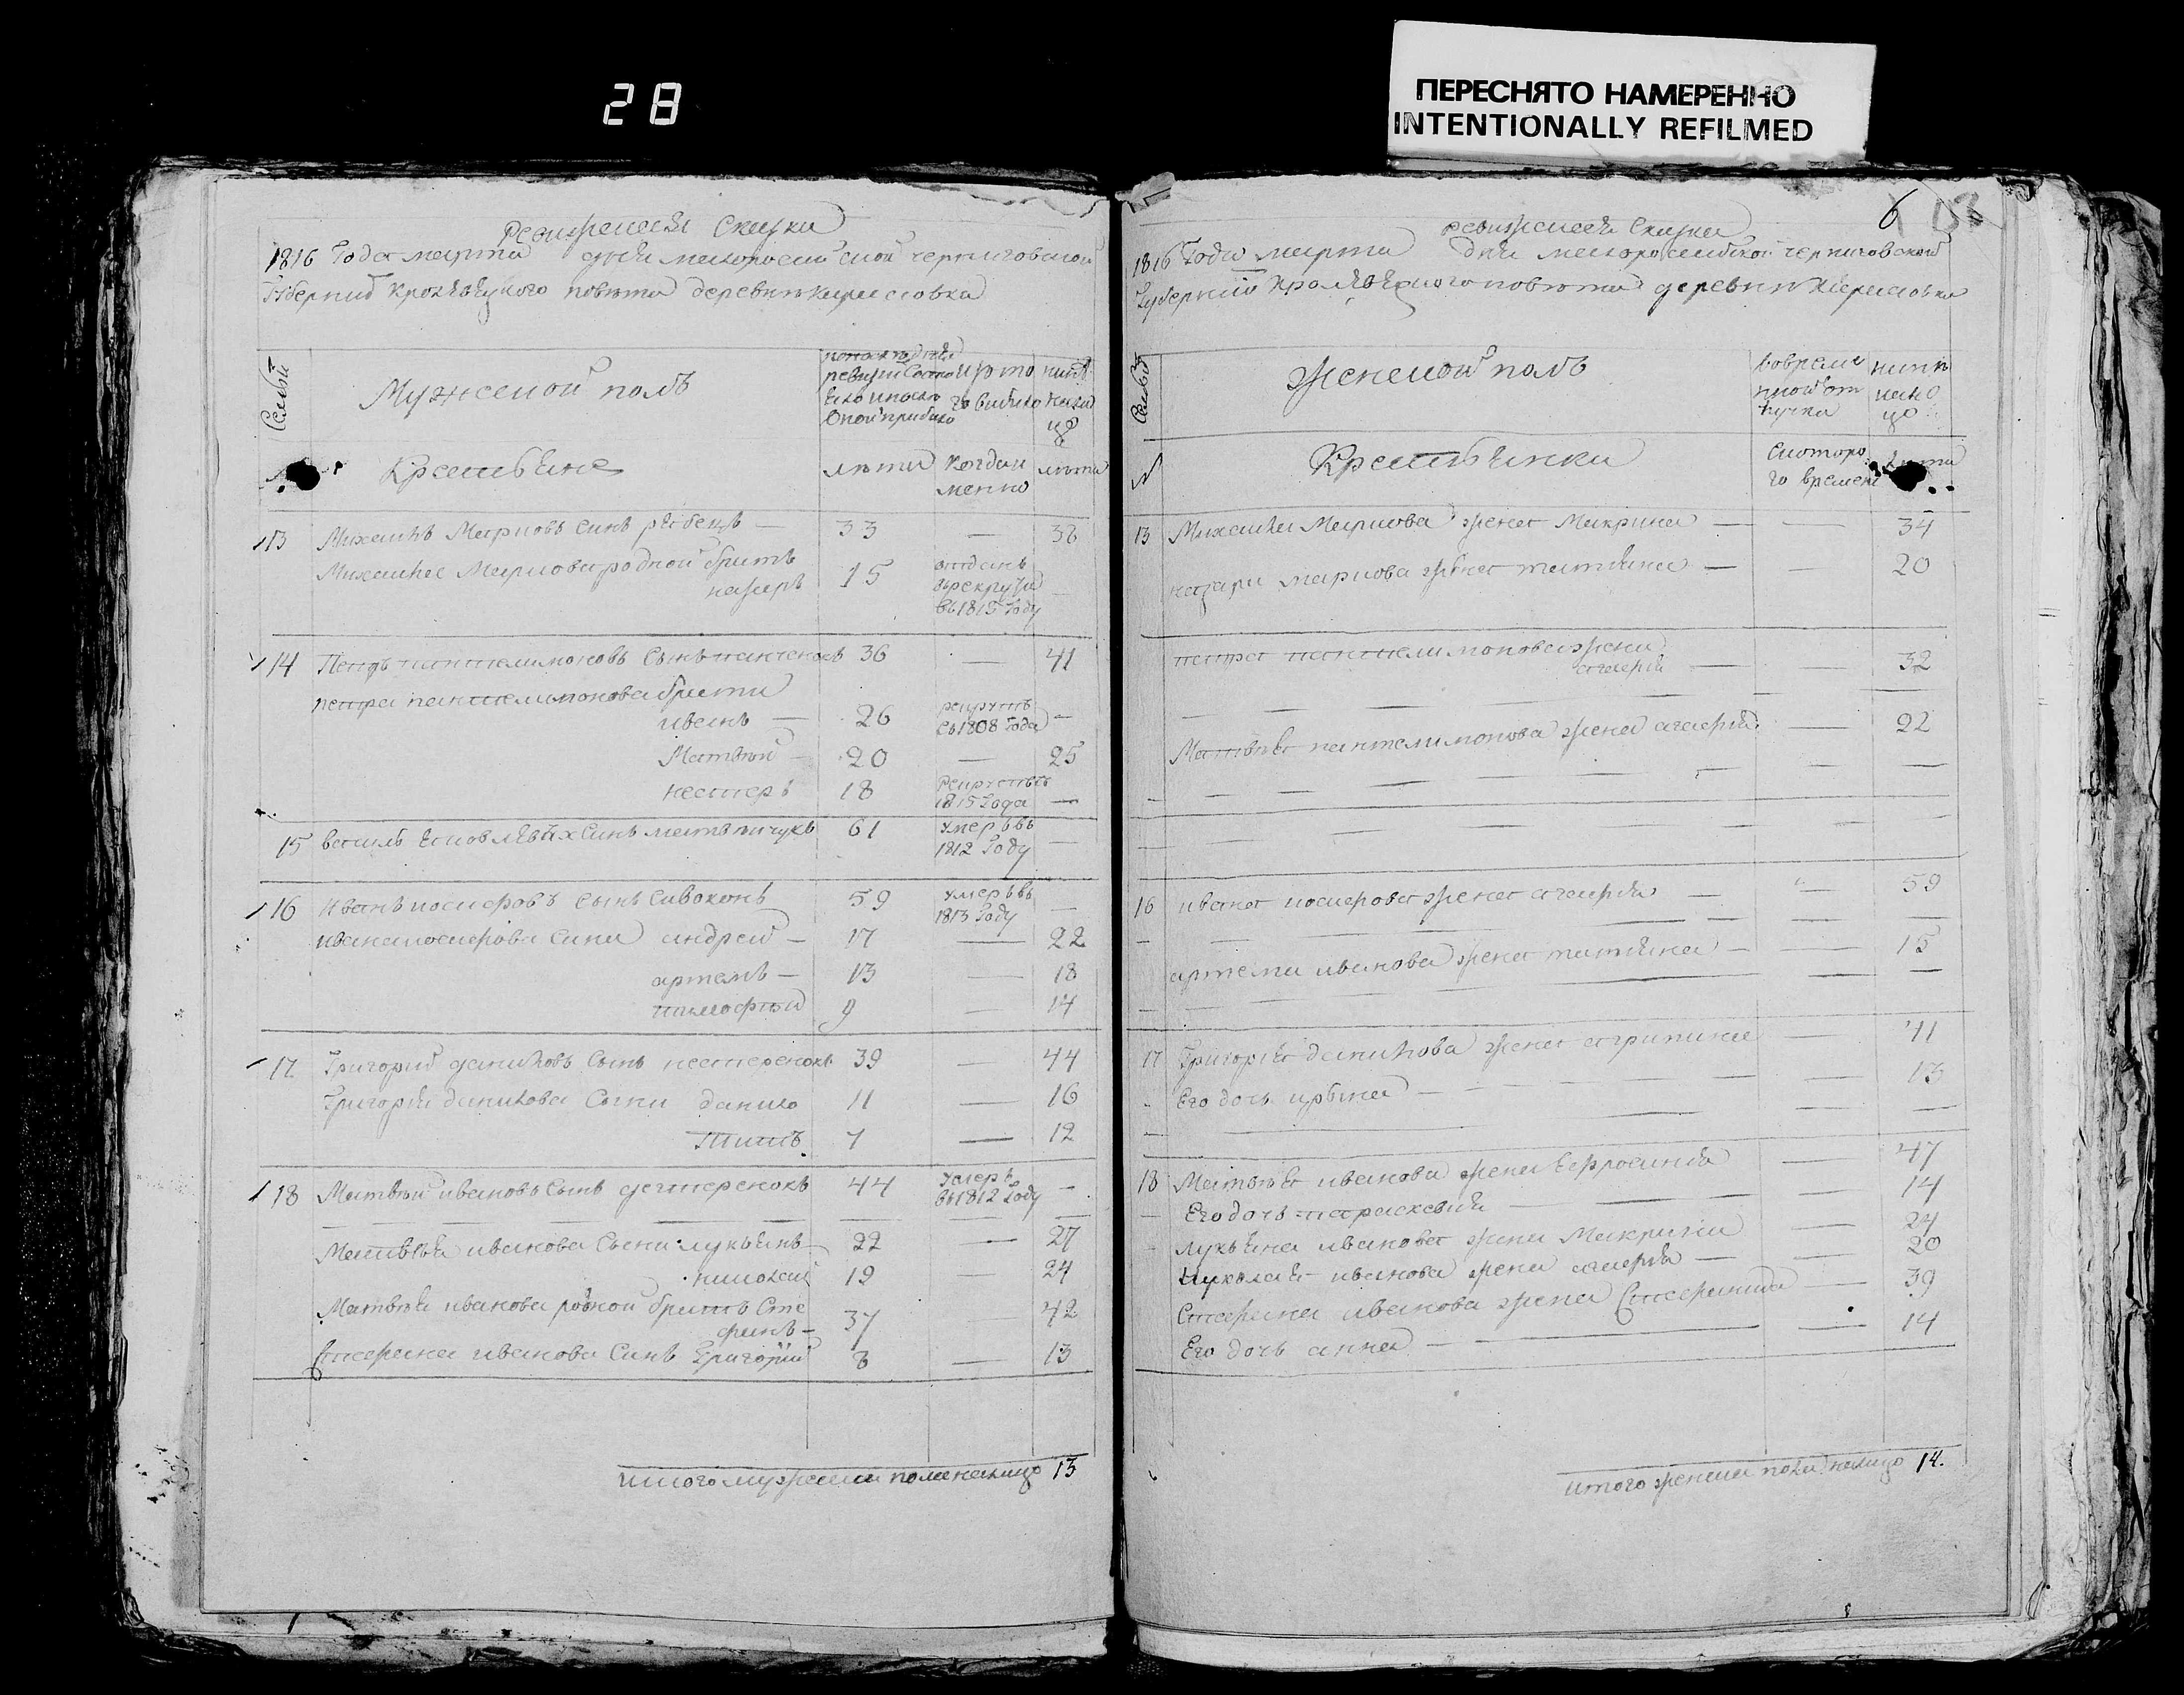 28
ПЕРЕСНЯТО НАМЕРЕННО
INTENTIONALLY REFILMED
Ревижская Сказка
1816 Года марта дня малоросийской черниговской
Губерний Кролевецкого повета деревни
Семьи
Мужеской полъ
ревизий
и после
оной прибыло
лета
Когда и
менно
лета
13 Михаилъ Марковъ синъ 33 — 38
Михаила Маркова родной братъ
назаръ 15 отданъ
в рекруты
въ 1815 Году —
14 Петръ пантелимоновъ Сынъ панченокъ 36 — 41
петра пантелимонова брати
иванъ — 26 рекрутъ
съ 1808 Года —
Матвей — 20 — 25
нестеръ 18 Рекрутъ съ
1815 Года —
15 василь Яковлевъ Синъ матвейчукъ 61 Умеръ въ
1812 Году —
16 Иванъ иосифовъ Сынъ Сивоконь 59 Умеръ въ
1813 Году —
ивана иосифова Сини андрей — 17 — 22
артемъ — 13 — 18
тимофей 9 — 14
17 Григорий даниловъ Сынъ нестеренокъ 39 — 44
Григория данилова Сыни данило 11 — 16
Титъ 7 — 12
18 Матвей ивановъ Сынъ дегтеренокъ 44 Умеръ
въ 1812 Году —
Матвея иванова Сыни лукьянъ — 22 — 27
николай 19 — 24
Матвея иванова родной братъ Сте
фанъ — 37 — 42
Стефана иванова Синъ Григорий 8 — 13
итого мужеска пола налицо 13
6
ревижская Сказка
1816 Года марта дня малоросийской черниговской
Губернии Кролевецкого повета деревни
Семьи
Женской полъ
во време
нной от
лучке
ныне
нали
цо
№
Крестьянки
Скоторо
го времени
лета
13 Михаила Маркова жена Макрина — — 34
назара маркова жена татияна — — 20
петра пантелимонова жена
агафия — — 32
Матвея пантелимонова жена агафия — 22
16 ивана иосифова жена агафия — — 59
артема иванова жена татияна — — 15
17 Григория данилова жена агрипина — 41
Его дочь ирина — — 13
18 Матвея иванова жена Евфросиния — 47
Его дочь параскевия — — 14
лукьяна иванова жена Макрина — 24
Николая иванова жена агафия — — 20
Стефана иванова жена Стефанида — 39
Его дочь анна — — 14
итого женска пола налицо 14.